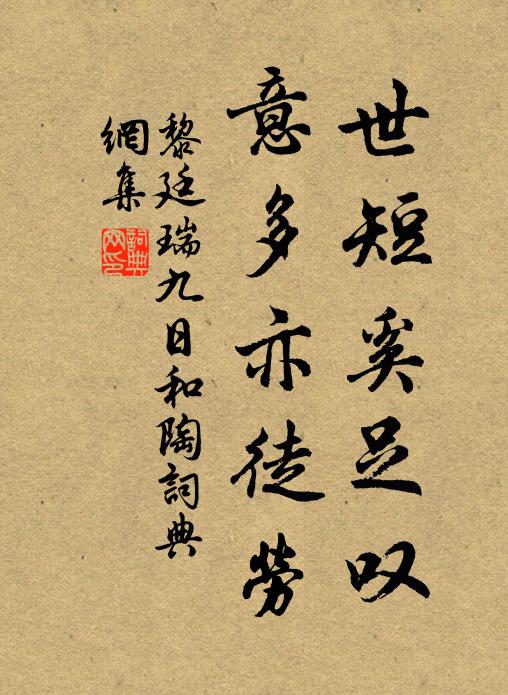 世短奚足叹
意多亦徒勞
黎廷瑞九日和陶詞典
網集
詞典
网印